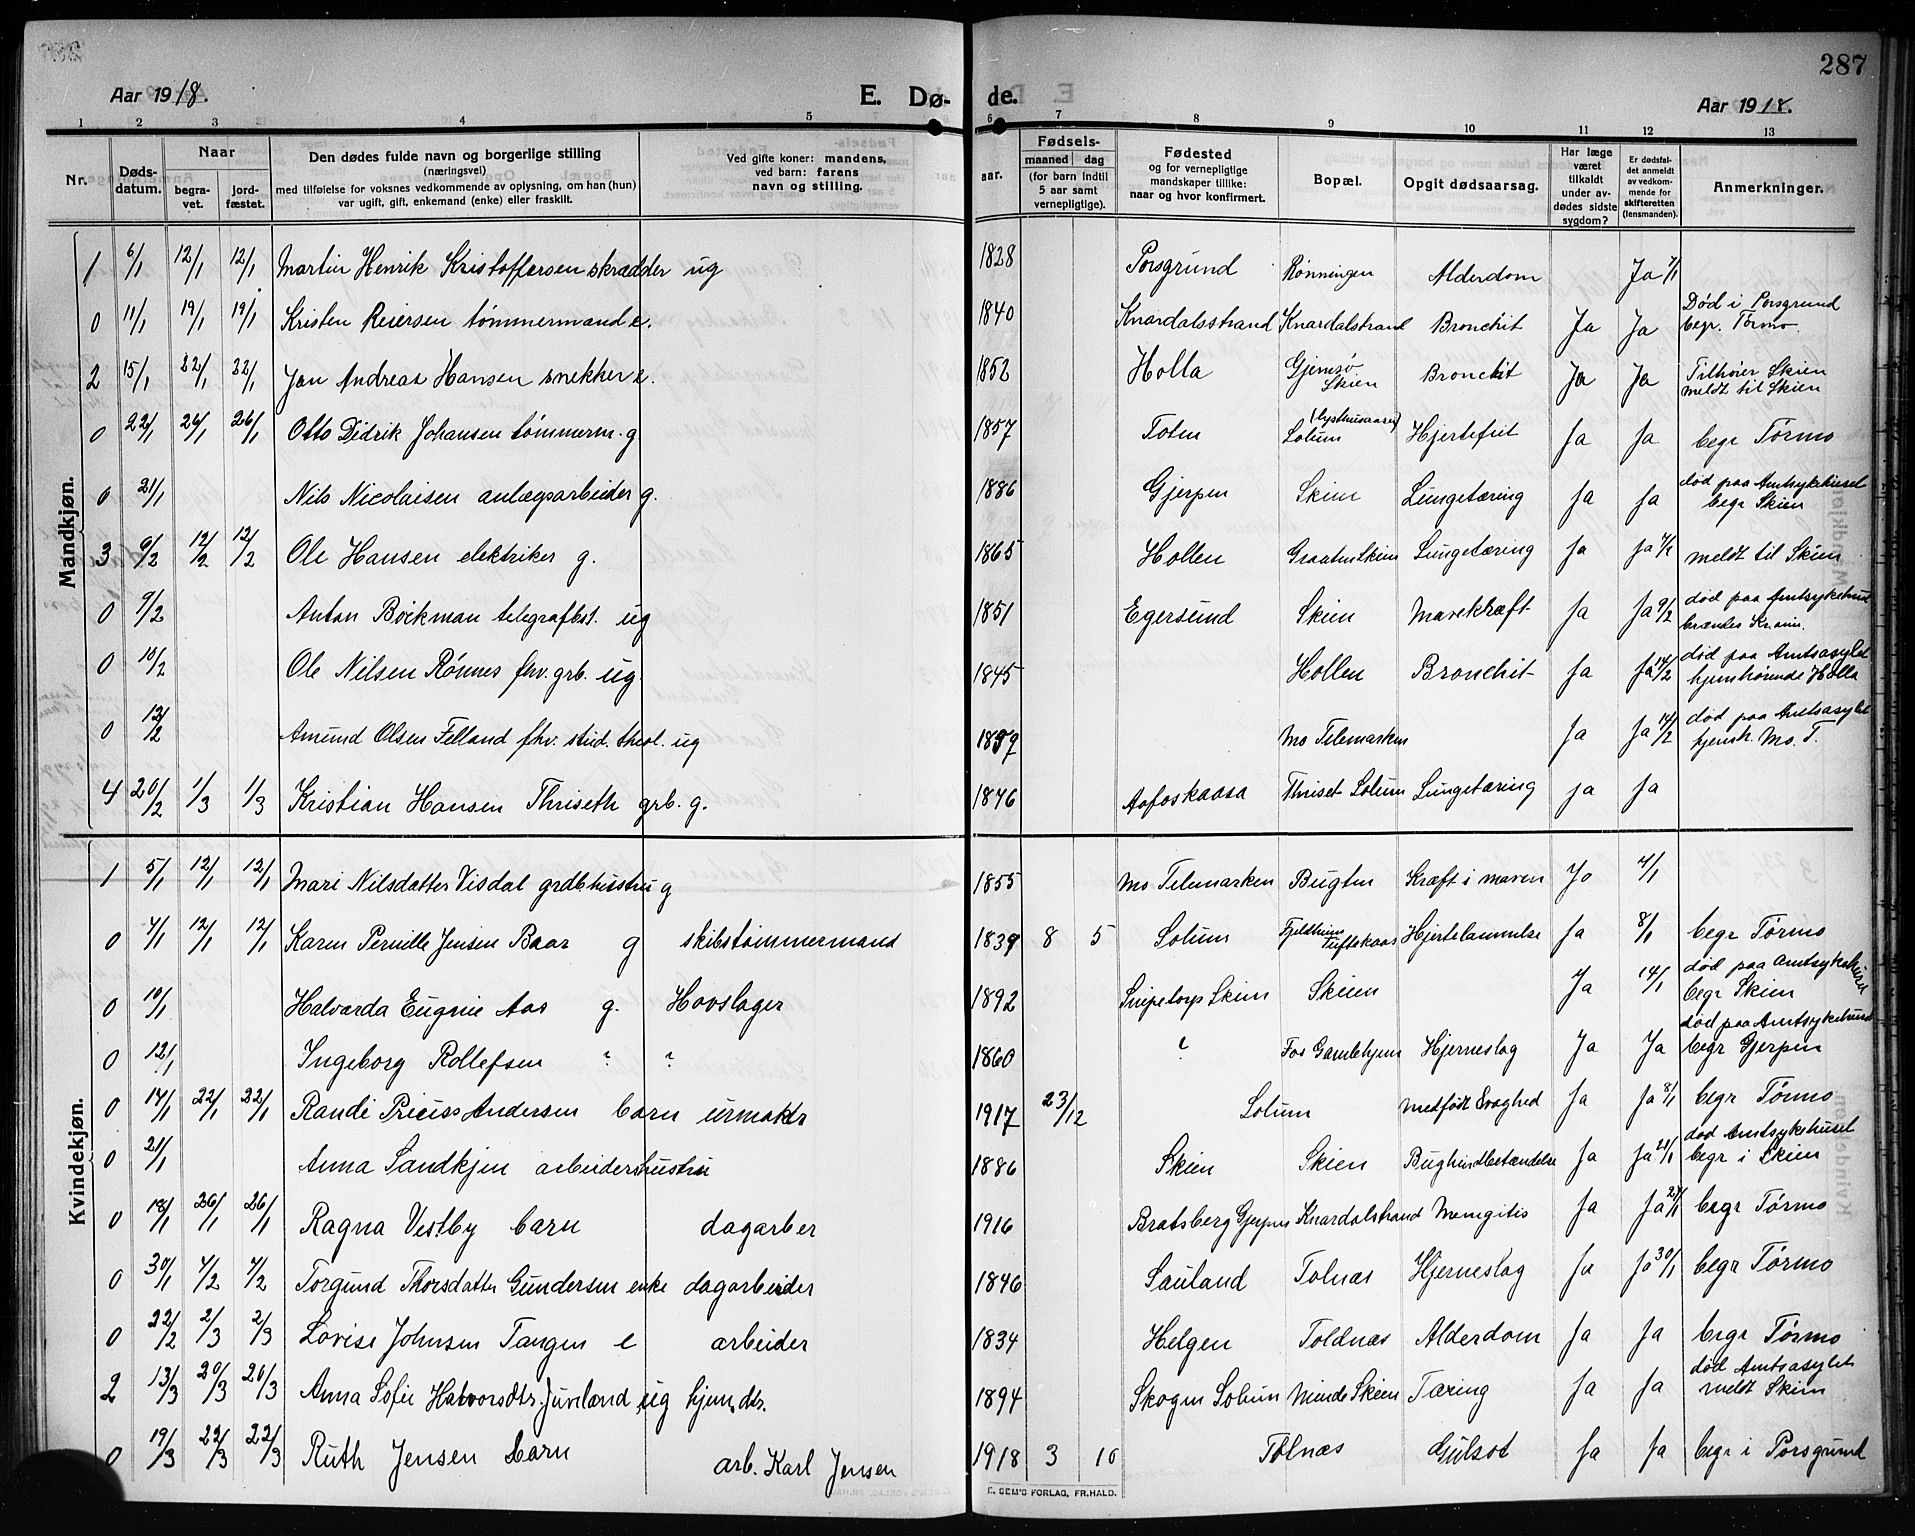 287
Aar 1918.
E. Dø-
de.
Aar 1918.
1 2 3 4 5 6 7 8 9 10 11 12 13
Nr.
Døds-datum.
Naar
begra-vet.
jord-fæstet.
Den dødes fulde navn og borgerlige stilling
(næringsvei)
med tilføielse for voksnes vedkommende av oplysning, om han (hun)
var ugift, gift, enkemand (enke) eller fraskilt.
Ved gifte koner: mandens,
ved barn: farens
navn og stilling.
aar.
Fødsels-
maaned dag
(for barn indtil
5 aar samt
vernepligtige).
Fødested
og for vernepligtige
mandskaper tillike:
naar og hvor konfirmert.
Bopæl.
Opgit dødsaarsag.
Har læge
været
tilkaldt
under av-
dødes sidste
sygdom?
Er dødsfal-
det anmeldt
av vedkom-
mende for
skifteretten
(lensmanden).
Anmerkninger.
Mandkjøn.
1 6/1 12/1 12/1 Martin Henrik Kristoffersen skrædder ug 1828 Porsgrund Rønningen Alderdom Ja 7/1
0 11/1 19/1 19/1 Kristen Reiersen tømmermand e. 1840 Knardalsstrand Knardalstrand Bronchit Ja Ja Død i Porsgrund
begr. Tørmo.
2 15/1 22/1 22/1 Jan Andreas Hansen snekker e. 1852 Holla Gjemsø
Skien Bronchit Ja Ja Tilhører Skien
meldt til Skien
0 22/1 26/1 26/1 Otto Didrik Johansen tømmerm. g 1857 Toten Solum Hjertefeil Ja Ja begr Tørmo
0 21/1 Nils Nicolaisen anlægsarbeider g. 1886 Gjerpen Skien Lungetæring Ja Ja død paa Amtsykehuset
begr Skien
3 9/2 12/2 12/2 Ole Hansen elektriker g. 1865 Hollen Graaten Skien Lungetæring Ja Ja meldt til Skien
0 9/2 Anton Bøckman telegrafbst. ug 1851 Egersund Skien Mavekræft Ja Ja 9/2 død paa Amtsykehus
brændes Kr.ania.
0 10/2 Ole Nilsen Rønnes fhv. grb. ug. 1845 Hollen Bronchit Ja Ja 14/2 død paa Amtsasylet
hjemhørende Holla
0 12/2 Amund Olsen Felland fhv. stud. theol. ug Mo Telemarken Ja Ja 14/2 død paa Amtsasylet
hjemh. Mo. T.
4 20/2 1/3 1/3 Kristian Hansen Thriseth grb. g. 1846 Aafoskaasa Thriset Solum Lungetæring Ja Ja
Kvindekjøn.
1 5/1 12/1 12/1 Mari Nilsdatter Visdal grdbhustru g 1855 Mo Telemarken Bugten Kræft i maven Ja 7/1
0 7/1 12/1 12/1 Karen Pernille Jensen Baar g skibstømmermand 1839 8 5 Solum Fjeldheim
Tuftekaas Hjertelammelse Ja 8/1 begr Tørmo
0 10/1 Halvarda Eugenie Aas g. Hovslager 1892 Snipetorp Skien Skien Ja 14/1 død paa Amtsykehus
begr Skien
0 12/1 Ingeborg Rollefsen ? ? 1860 ? Fos Gamlehjem Hjerneslag Ja Ja død paa Amtsykehus
begr Gjerpen
0 14/1 22/1 22/1 Randi Andersen barn urmaker 1917 23/12 Solum Medfødt Svaghed Ja Ja 8/1 begr Tørmo
0 21/1 Anna Sandkjen arbeidershustru 1886 Skien Skien Bughindbetændelse Ja Ja 21/1 død Amtsykehuset
begr i Skien
0 18/1 26/1 26/1 Ragna Vestby barn dagarber 1916 Bratsberg Gjerpen Knardalstrand Meningitis Ja Ja begr Tørmo
0 30/1 7/2 7/2 Torgund Thorsdatter Gundersen enke dagarbeider 1846 Sauland Tolnæs Hjerneslag Ja Ja 30/1 begr Tørmo
0 22/2 2/3 2/3 Lovise Johnsen Tangen e arbeider 1834 Helgen Toldnæs Alderdom Ja Ja begr Tørmo
2 13/3 20/3 20/3 Anna Sofie Halvorsdtr. Juveland ug hjem.dtr. 1894 Skogen Solum Minde Skien Tæring Ja Ja død Amtsasylet
meldt Skien
0 19/3 22/3 22/3 Ruth Jensen barn arb. Karl Jensen 1918 3 10 Tolnæs Gulsot Ja Ja begr i Porsgrund
E. SEM'S FORLAG, FR.HALD.